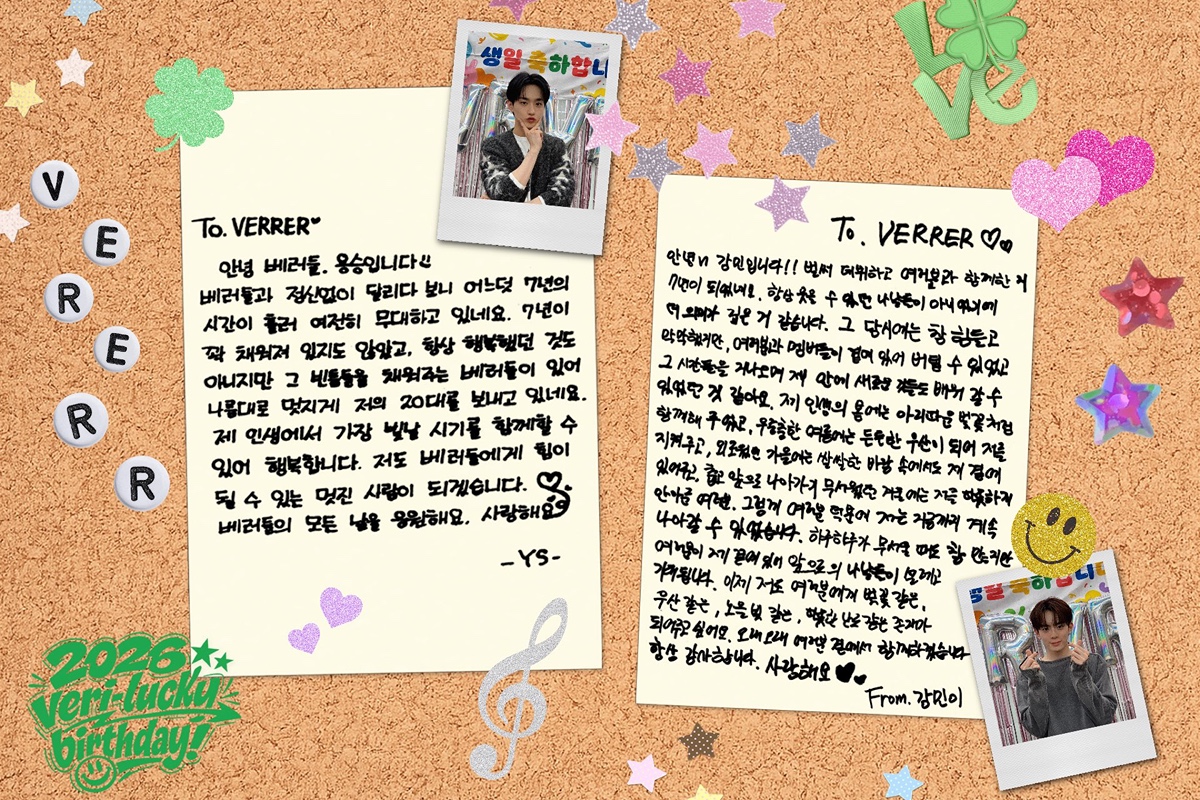 생일 축하합니
LOVE
V
E
R
R
E
R
To. VERRER
안녕 베러들. 용승입니다
베러들과 정신없이 달리다 보니 어느덧 7년의
시간이 흘러 여전히 무대하고 있네요. 7년이
꽉 채워져 있지도 않았고, 항상 행복했던 것도
아니지만 그 빈틈들을 채워주는 베러들이 있어
나름대로 멋지게 저의 20대를 보내고 있네요.
제 인생에서 가장 빛날 시기를 함께할 수
있어 행복합니다. 저도 베러들에게 힘이
될 수 있는 멋진 사람이 되겠습니다.
베러들의 모든 날을 응원해요. 사랑해요
-YS-
To. VERRER
안녕 강민입니다!! 벌써 데뷔하고 여러분과 함께한 지
7년이 되었네요. 항상 웃을 수 있었던 나날들이 아니었기에
더 의미가 깊은 거 같습니다. 그 당시에는 참 힘들고
막막했지만, 여러분과 멤버들이 곁에 있어 버틸 수 있었고
그 시간들을 지나오며 제 안에 새로운 것들도 배워 갈 수
있었던 것 같아요. 제 인생의 봄에는 아리따운 벚꽃처럼
함께해 주었고, 우중충한 여름에는 든든한 우산이 되어 저를
지켜주고, 외로웠던 가을에는 쌀쌀한 바람 속에서도 제 곁에
있어주고, 춥고 앞으로 나아가기 무서웠던 겨울에는 저를 따뜻하게
안아준 여러분. 그렇게 여러분 덕분에 저는 지금까지 계속
나아갈 수 있었습니다. 하루하루가 무서울 때도 참 많지만
여러분이 제 곁에 있어 앞으로의 나날들이 설레고
기대됩니다. 이제 저도 여러분에게 벚꽃 같은,
우산 같은, 노을 빛 같은, 따뜻한 난로 같은 존재가
되어주고 싶어요. 오래오래 여러분 곁에서 함께하겠습니다
항상 감사합니다. 사랑해요
From. 강민이
2026
Veri-lucky
birthday!